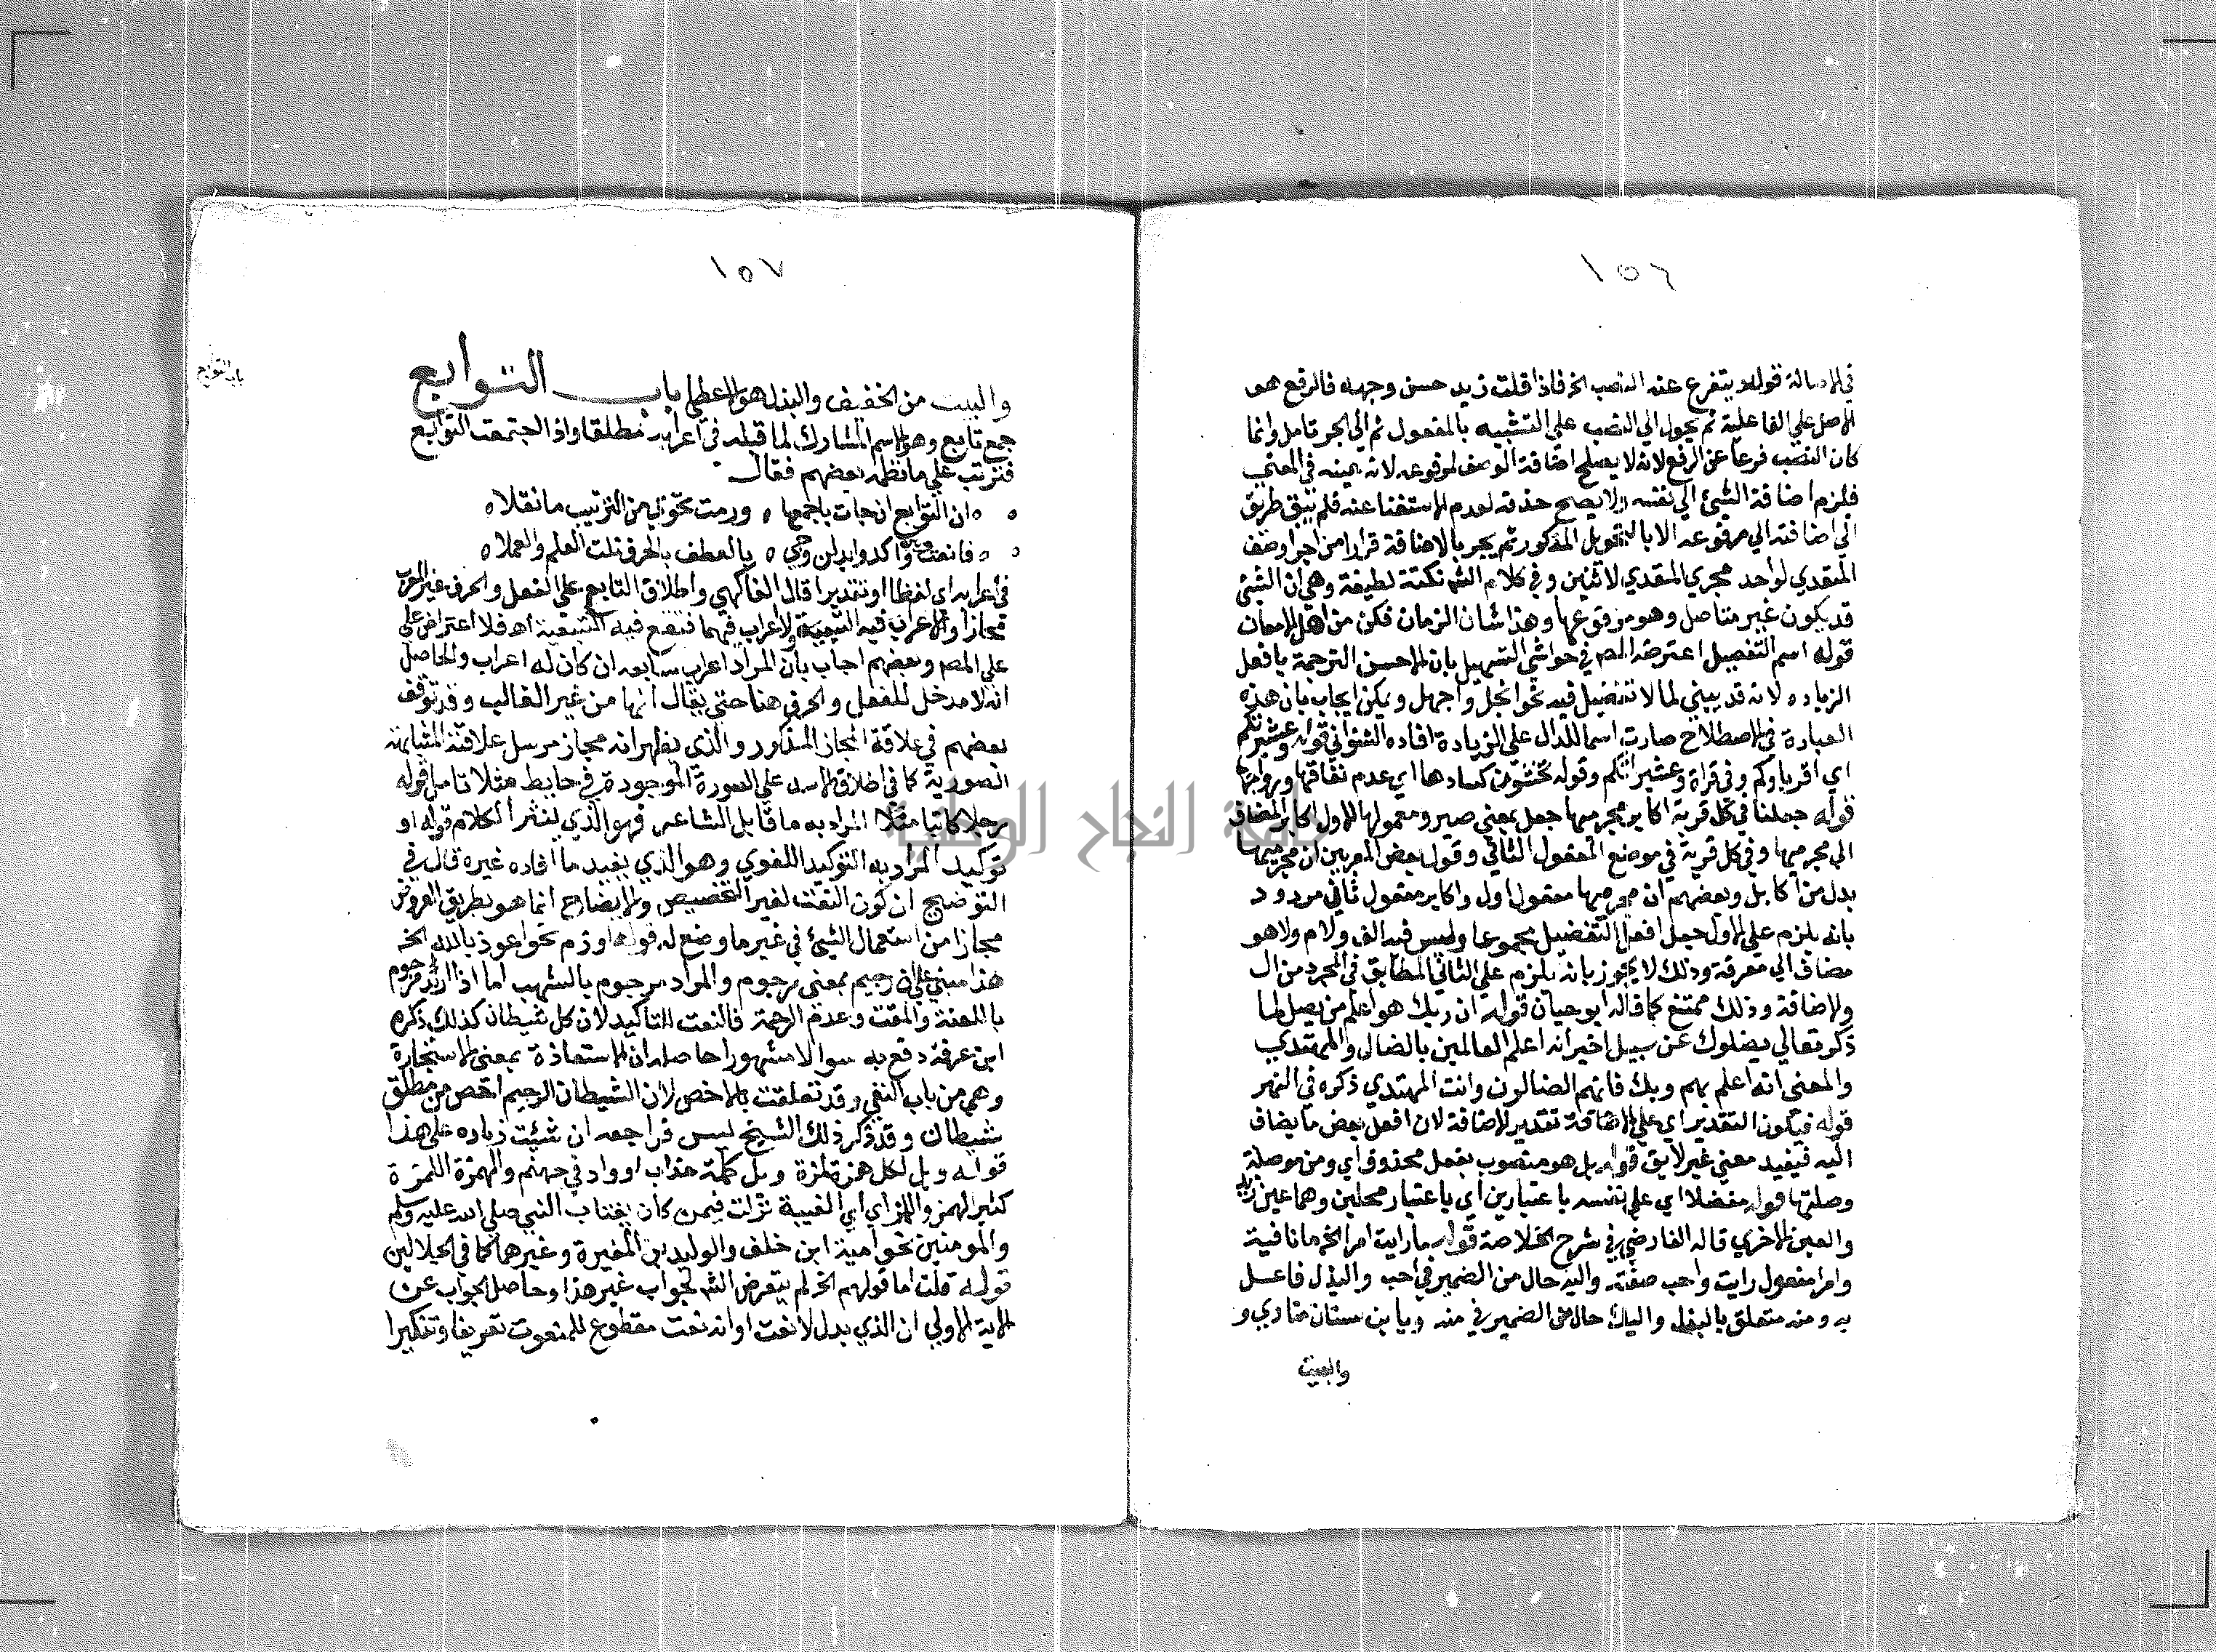 ١٥٦
في الاصالة قوله ويتفرع عنه النصب الخ فاذا قلت زيد حسن وجهه فالرفع هو
الاصل علي الفاعلية ثم يحول الي النصب علي التشبيه بالمفعول ثم الي الجر تامل وانما
كان النصب فرعا عن الرفع لانه لا يصلح اضافة الوصف لمرفوعه لانه عينه في المعني
فيلزم اضافة الشيئ الي نفسه ولا يصح حذفه لعدم الاستغنا عنه فلم يبق طريق
الي اضافته الي مرفوعه الا بالتحويل المذكور ثم يجر بالاضافة فرارا من اجرا وصف
المتعدي لواحد مجري المتعدي لاثنين وفي كلام الشه نكتة لطيفة وهي ان الشيئ
قد يكون غير متاصل وهو مرفوع عمها وهذا شان الزمان فكن من اهل الامعان
قوله اسم التفضيل اعترضه المص في حواشي التسهيل بان الاحسن الترجمة بافعل
الزياده لانه قد يبني لما لا تفضيل فيه نحو انجل واجهل ويمكن ايجاب بان هذه
العبارة في الاصطلاح صارت اسما للدال علي الزيادة افاده الشنواني قوله وعشيرتكم
اي اقرباوكم وفي قراة وعشيراتكم وقوله تخشون كسادها اي عدم نفاقها ورواجها
قوله جعلنا في كل قرية اكابر مجرميها جعل بمعني صير ومعمولها الاول اكابر المضاف
الي مجرميها وفي كل قرية في موضع المفعول الثاني وقول بعض المعربين ان مجرميها
بدل من اكابر وبعضهم ان مجرميها مفعول اول واكابر مفعول ثاني مردود
بانه يلزم علي الاول جعل افعل التفضيل مجموعا وليس فيه الف ولام ولا هو
مضاف الي معرفة وذلك لا يجوز بانه يلزم علي الثاني المطابق في المجرد من ال
والاضافة وذلك ممتنع كما قاله ابو حيان قوله ان ربك هو اعلم من يضل لما
ذكر تعالي يضلوك عن سبيل اخبر انه اعلم العالمين بالضال والمهتدي
والمعني انه اعلم بهم وبك فانهم الضالون وانت المهتدي ذكره في النهر
قوله فيكون التقدير اي علي الاضافة تقدير الاضافة لان افعل بعض ما يضاف
اليه فيفيد معني غير لايق قوله بل هو منصوب بفعل محذوف اي ومن موصلة
وصلتها قوله مفضلا اي علي نفسه باعتبارين اي باعتبار محلين وهما عين زيد
والعين الاخري قاله الفارضي في شرح الخلاصة قوله ما رايت امرا الخ ما نافية
وامرا مفعول رايت واحب صفته واليه حال من الضمير في احب والبذل فاعل
به ومنه متعلق بالبذل واليك حال من الضمير في منه ويا بن سنان منادي و
والبيت
١٥٧
والبيت من الخفيف والبذل هو الاعطا باب التوابع
باب التوابع
جمع تابع وهو الاسم المشارك لما قبله في اعرابه مطلقا واذا اجتمعت التوابع
فترتب علي ما نظمه بعضهم فقال
ان التوابع ان جات باجمعها ورمت تحوي من الترتيب ما نقلا
فانعت وبين واكد وابدلن وجي بالعطف بالحرف نلت العلم والعملا
في اعرابه اي لفظا او تقديرا قال الفاكهي واطلاق التابع علي الفعل والحرف غير المعرب
مجازا والاعراب فيه التبعية ولا عراب فيهما فتقع فيه التبعية اه فلا اعتراض علي
علي المص وبعضهم اجاب بان المراد اعراب سابعه ان كان له اعراب والحاصل
انه لا مدخل للفعل والحرف هنا حتي يقال انها من غير الغالب وقد توقف
بعضهم في علاقة المجاز المذكور والذي يظهر انه مجاز مرسل علاقته المشابهة
الصورية كما في اطلاق الاسد علي الصورة الموجودة في حايط مثلا تامل قوله
رجلا كاتبا مثلا المراد به ما قابل الشاعر فهو الذي ينثر الكلام قوله او
توكيد المراد به التوكيد اللغوي وهو الذي يفيد ما افاده غيره قال في
التوضيح ان كون النعت لغير التخصيص والايضاح انما هو بطريق العروض
مجازا من استعمال الشيئ في غير ما وضع له قوله او ذم نحو اعوذ بالله الخ
هذا مبني علي ان رجيم بمعني مرجوم والمراد مرجوم بالشهب اما اذا اريد مرجوم
باللعنة والمقت وعدم الرحمة فالنعت للتاكيد لان كل شيطان كذلك ذكره
ابن عرفة دفع به سوالا مشهورا حاصله ان الاستعاذة بمعني الاستجارة
وهي من باب النفي وقد تعلقت بالاخص لان الشيطان الرجيم اخص من مطلق
شيطان وقد ذكر ذلك الشيخ ليس فراجعه ان شيئت زياده علي هذا
قوله ويل لكل همزة لمزة ويل كلمة عذاب او واد في جهنم والهمزة اللمزة
كثير الهمز واللمز اي اي الغيبة نزلت فيمن كان يغتاب النبي صلي الله عليه وسلم
والمومنين نحو امية ابن خلف والوليد بن المغيرة وغيرهما كما في الجلالين
قوله قلت اما قولهم الخ لم يتعرض الشه لجواب غير هذا وحاصل الجواب عن
الاية الاولي ان الذي بدل لا نعت او انه نعت مقطوع للمنعوت تعريفا وتنكيرا
جامعة النجاح الوطنية